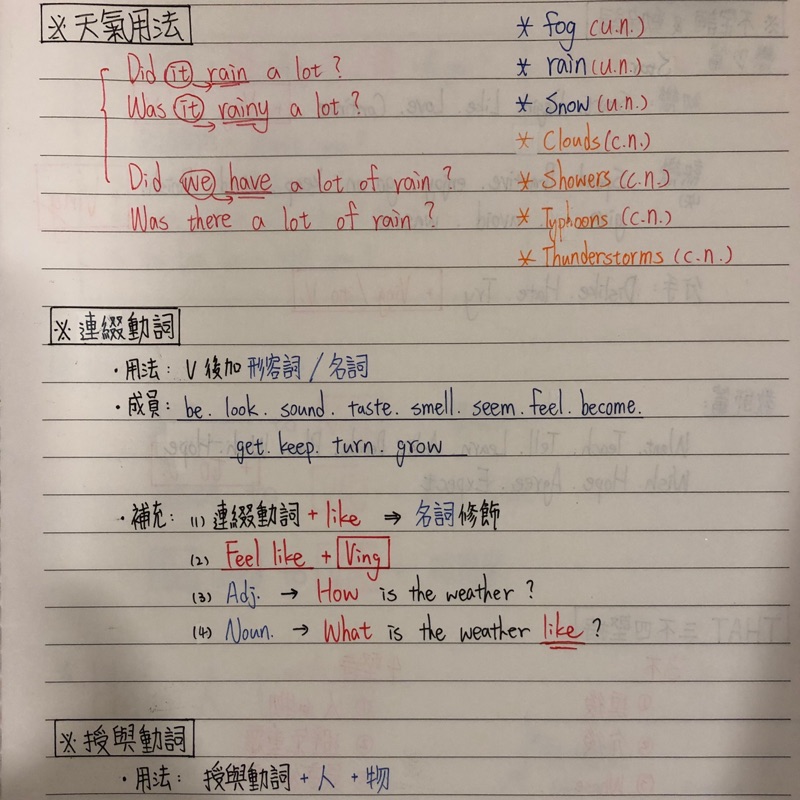 ※天氣用法
Did it rain a lot?
Was it rainy a lot?
Did we have a lot of rain?
Was there a lot of rain?
* fog (u.n.)
* rain (u.n.)
* Snow (u.n.)
* Clouds (c.n.)
* Showers (c.n.)
* Typhoons (c.n.)
* Thunderstorms (c.n.)
※連綴動詞
・用法: V後加 形容詞 / 名詞
・成員: be. look. sound. taste. smell. seem. feel. become.
get. keep. turn. grow
・補充: (1) 連綴動詞 + like ⇒ 名詞修飾
(2) Feel like + Ving
(3) Adj. → How is the weather?
(4) Noun. → What is the weather like?
※授與動詞
・用法: 授與動詞 + 人 + 物